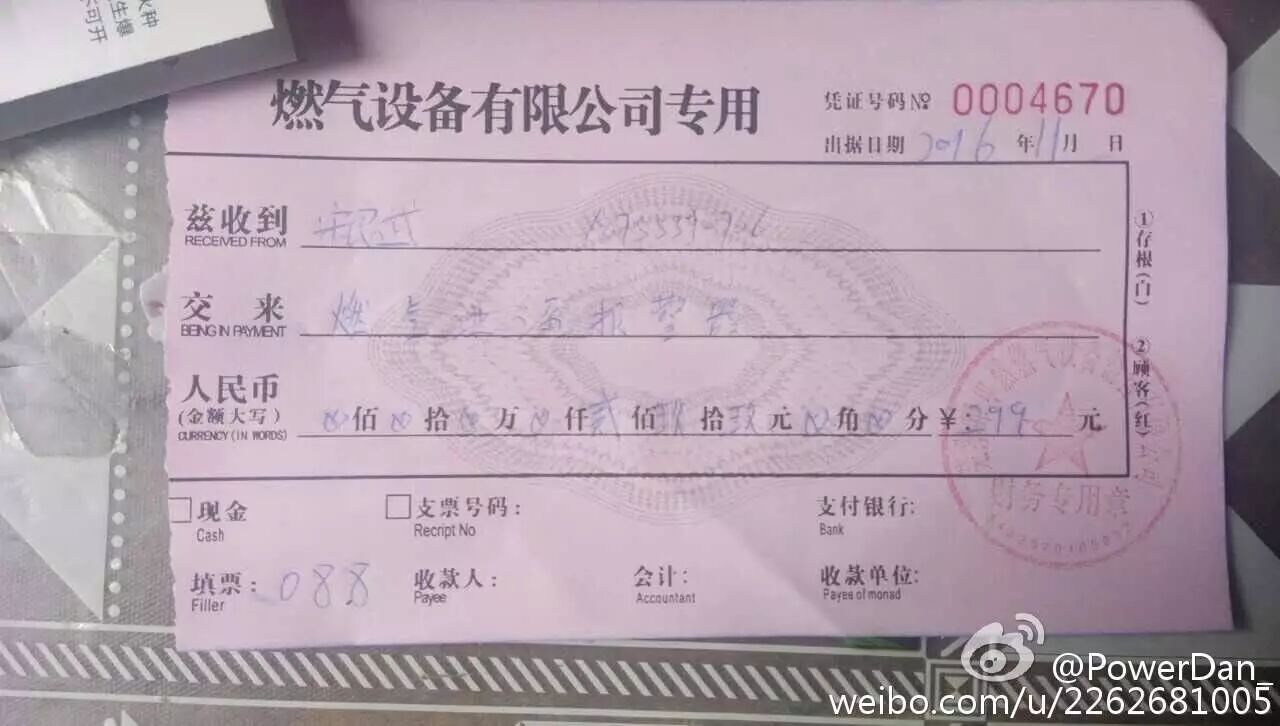 火种
生爆
不可开
燃气设备有限公司专用
凭证号码 № 0004670
出据日期 2016 年 11 月 日
兹收到
RECEIVED FROM
交来 燃气泄漏报警器
BEING IN PAYMENT
人民币
(金额大写)
CURRENCY (IN WORDS)
⊗佰⊗拾⊗万⊗仟贰佰玖拾玖元⊗角⊗分 ¥:299 元
①存根(白) ②顾客(红)
财务专用章
现金 支票号码: 支付银行:
Cash Recript No Bank
填票: 088 收款人: 会计: 收款单位:
Filler Payee Accountant Payee of monad
@PowerDan_
weibo.com/u/2262681005